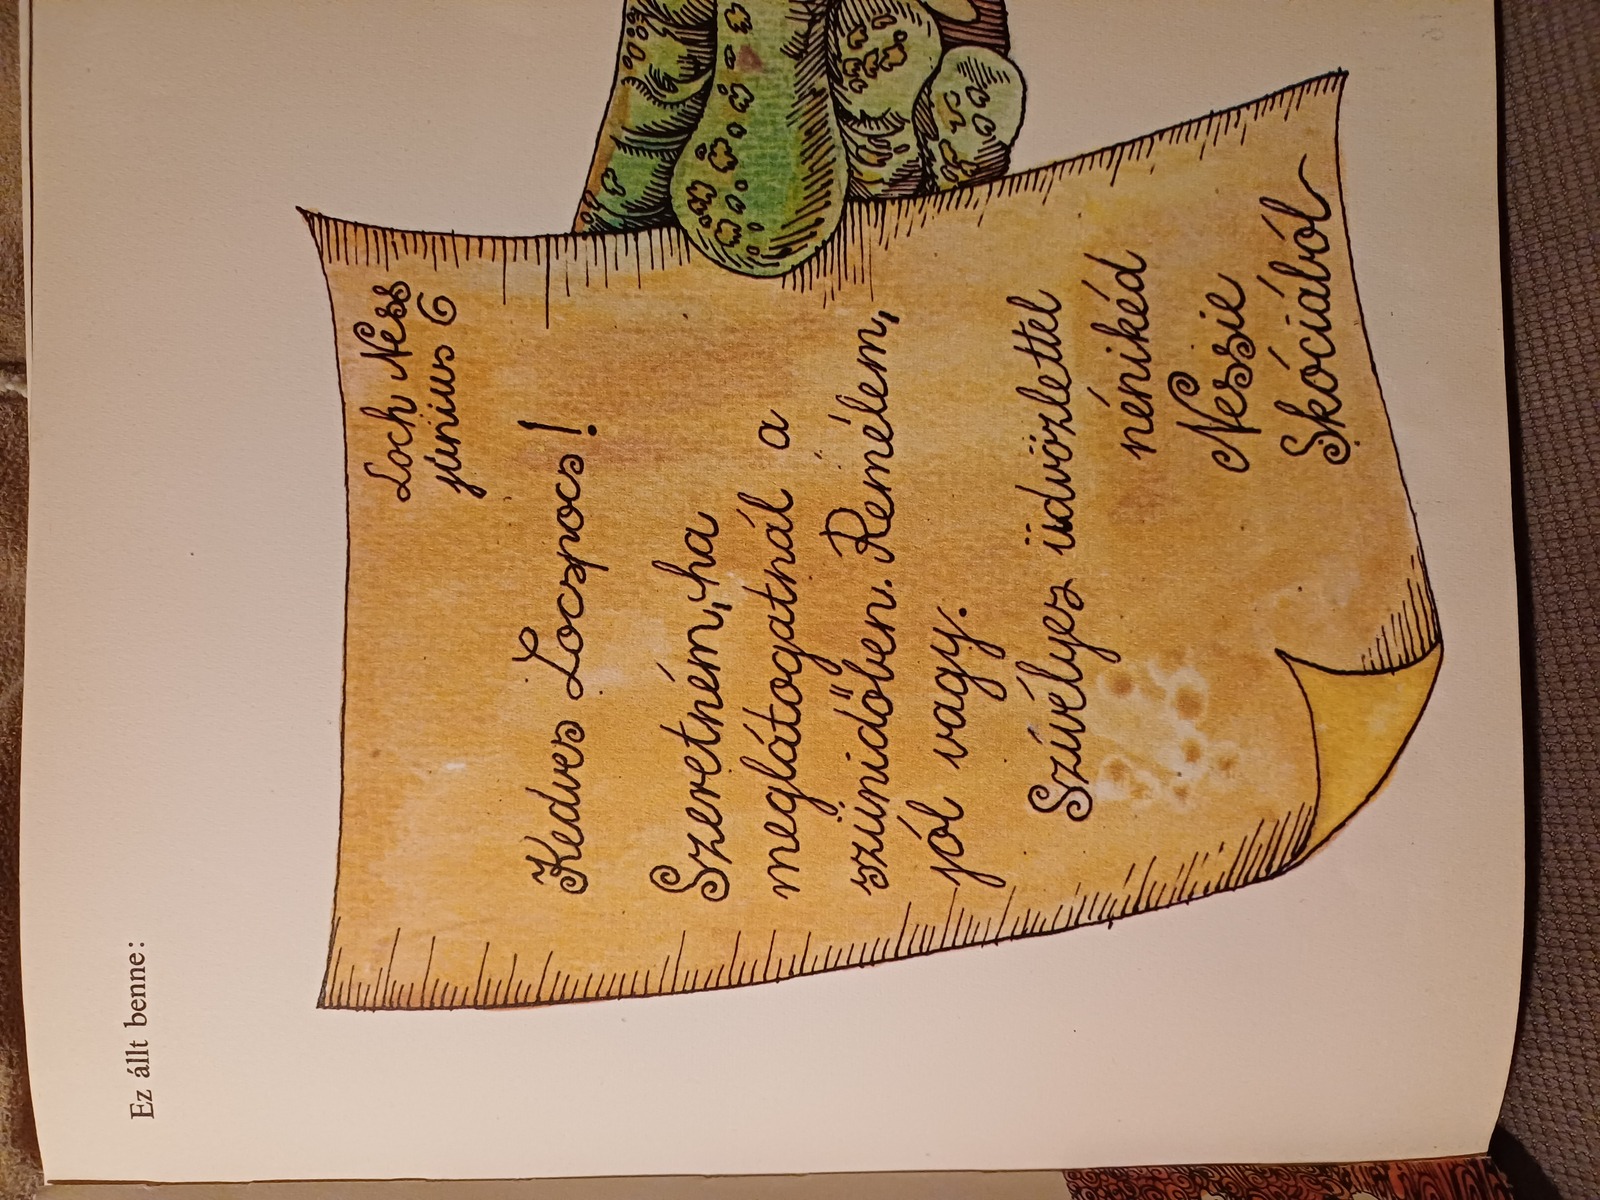 Ez állt benne:
Loch Ness
június 6
Kedves Locspocs!
Szeretném, ha
meglátogatnál a
szünidőben. Remélem,
jól vagy.
Szívélyes üdvözlettel
nénikéd
Nessie
Skóciából